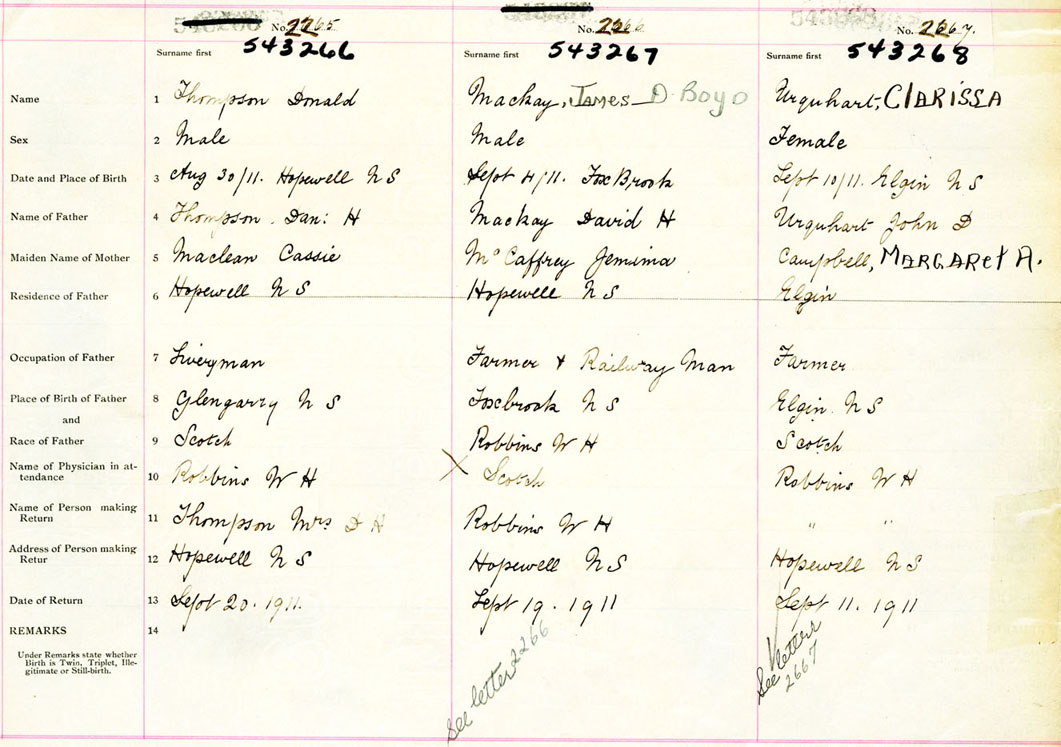 No. 2265 No. 2266 No. 2267.
Surname first 543266 Surname first 543267 Surname first 543268
Name 1 Thompson Donald Mackay, JAMES D. Boyd Urquhart, CLARISSA
Sex 2 Male Male Female
Date and Place of Birth 3 Aug 30/11. Hopewell N S Sept 4/11. Fox Brook Sept 10/11. Elgin N S
Name of Father 4 Thompson. Dan: H Mackay David H Urquhart John D
Maiden Name of Mother 5 Maclean Cassie McCaffrey Jemima Campbell, MARGARET A.
Residence of Father 6 Hopewell N S Hopewell N S Elgin
Occupation of Father 7 Liveryman Farmer & Railway Man Farmer
Place of Birth of Father 8 Glengarry N S Foxbrook N S Elgin. N S
and
Race of Father 9 Scotch Robbins W H Scotch
Name of Physician in at-
tendance 10 Robbins W H X Scotch Robbins W H
Name of Person making
Return 11 Thompson Mrs D H Robbins W H " "
Address of Person making
Retur 12 Hopewell N S Hopewell N S Hopewell N S
Date of Return 13 Sept 20. 1911. Sept 19. 1911 Sept 11. 1911
REMARKS 14
Under Remarks state whether
Birth is Twin, Triplet, Ille-
gitimate or Still-birth.
See letter 2266
See letter
2667